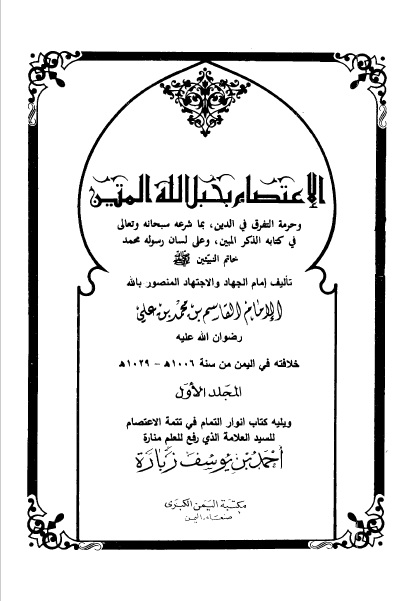 الإعتصام بحبل الله المتين
وحرمة التفرق في الدين، بما شرعه سبحانه وتعالى
في كتابه الذكر المبين، وعلى لسان رسوله محمد
خاتم النبيين ﷺ
تأليف إمام الجهاد والاجتهاد المنصور بالله
الإمام القاسم بن محمد بن علي
رضوان الله عليه
خلافته في اليمن من سنة ١٠٠٦هـ - ١٠٢٩هـ
المجلد الأول
ويليه كتاب انوار التمام في تتمة الاعتصام
للسيد العلامة الذي رفع للعلم منارة
أحمد بن يوسف زبارة
مكتبة اليمن الكبرى
صنعاء. اليمن